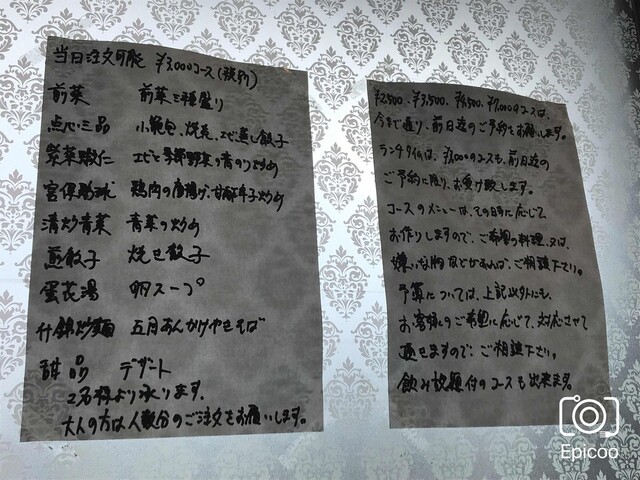 当日注文可能 ¥3,000コース(税別)
前菜 前菜三種盛り
点心三品 小籠包、焼売、エビ蒸し餃子
紫菜蝦仁 エビと季節野菜の青のり炒め
宮保鶏球 鶏肉の唐揚げ、甘酢辛子炒め
清炒青菜 青菜の炒め
煎餃子 焼き餃子
蛋花湯 卵スープ
什錦炒麺 五目あんかけやきそば
甜品 デザート
2名様より承ります。
大人の方は人数分のご注文をお願いします。
¥2,500、¥3,500、
コースは、
今まで通り、前日迄のご予約をお願いします。
ランチタイムは、¥3,000コースも、前日迄の
ご予約に限り、お受け致します。
コースのメニューは、その日時に応じて
お作りしますので、ご希望の料理、又は、
嫌いな物などがあれば、ご相談下さい。
予算については、上記以外にも、
お客様のご希望に応じて、対応させて
頂せますので、ご相談下さい。
飲み放題付のコースも出来ます。
Epicoo